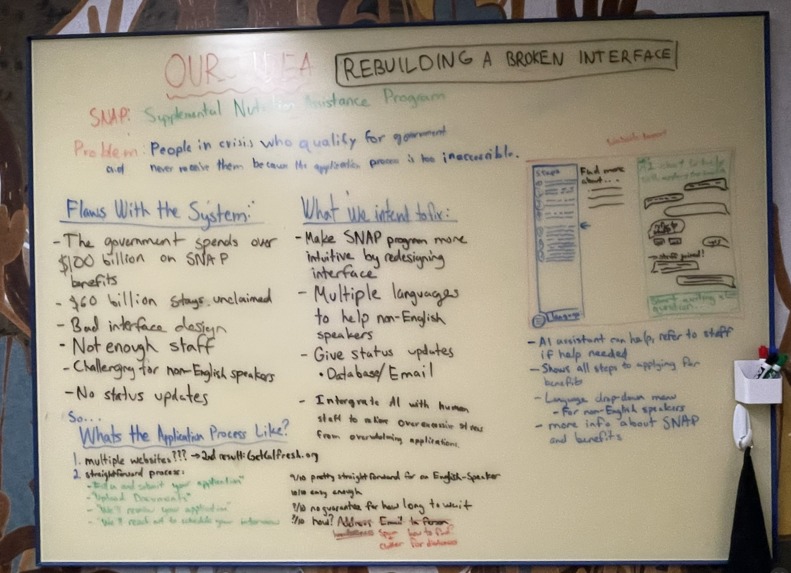 OUR IDEA REBUILDING A BROKEN INTERFACE
SNAP: Supplemental Nutrition Assistance Program
Problem: People in crisis who qualify for government
aid never receive them because the application process is too inaccessible.
Flaws With the System:
- The government spends over
$100 billion on SNAP
benefits
- $60 billion stays unclaimed
- Bad interface design
- Not enough staff
- Challenging for non-English speakers
- No status updates
So...
What We intend to fix:
- Make SNAP program more
intuitive by redesigning
interface
- Multiple languages
to help non-English
speakers
- Give status updates
• Database/Email
- Intergrate AI with human
staff to relieve overexcessive stress
from overwhelming applications.
Steps
Find more
about...
Language
- AI assistant can help, refer to staff
if help needed
- Shows all steps to applying for
benefits
- Language drop-down menu
- For non-English speakers
- more info about SNAP
and benefits
Whats the Application Process Like?
1. multiple websites??? → 2nd result: GetCalFresh.org
2. straightforward process:
- Fill in and submit your application"
- "Upload Documents"
- "We'll review your application"
- "We'll reach out to schedule your interview
9/10 pretty straightforward for an English-Speaker
10/10 easy enough
?/10 no guarantee for how long to wait
?/10 how? Address Email In Person
how to find